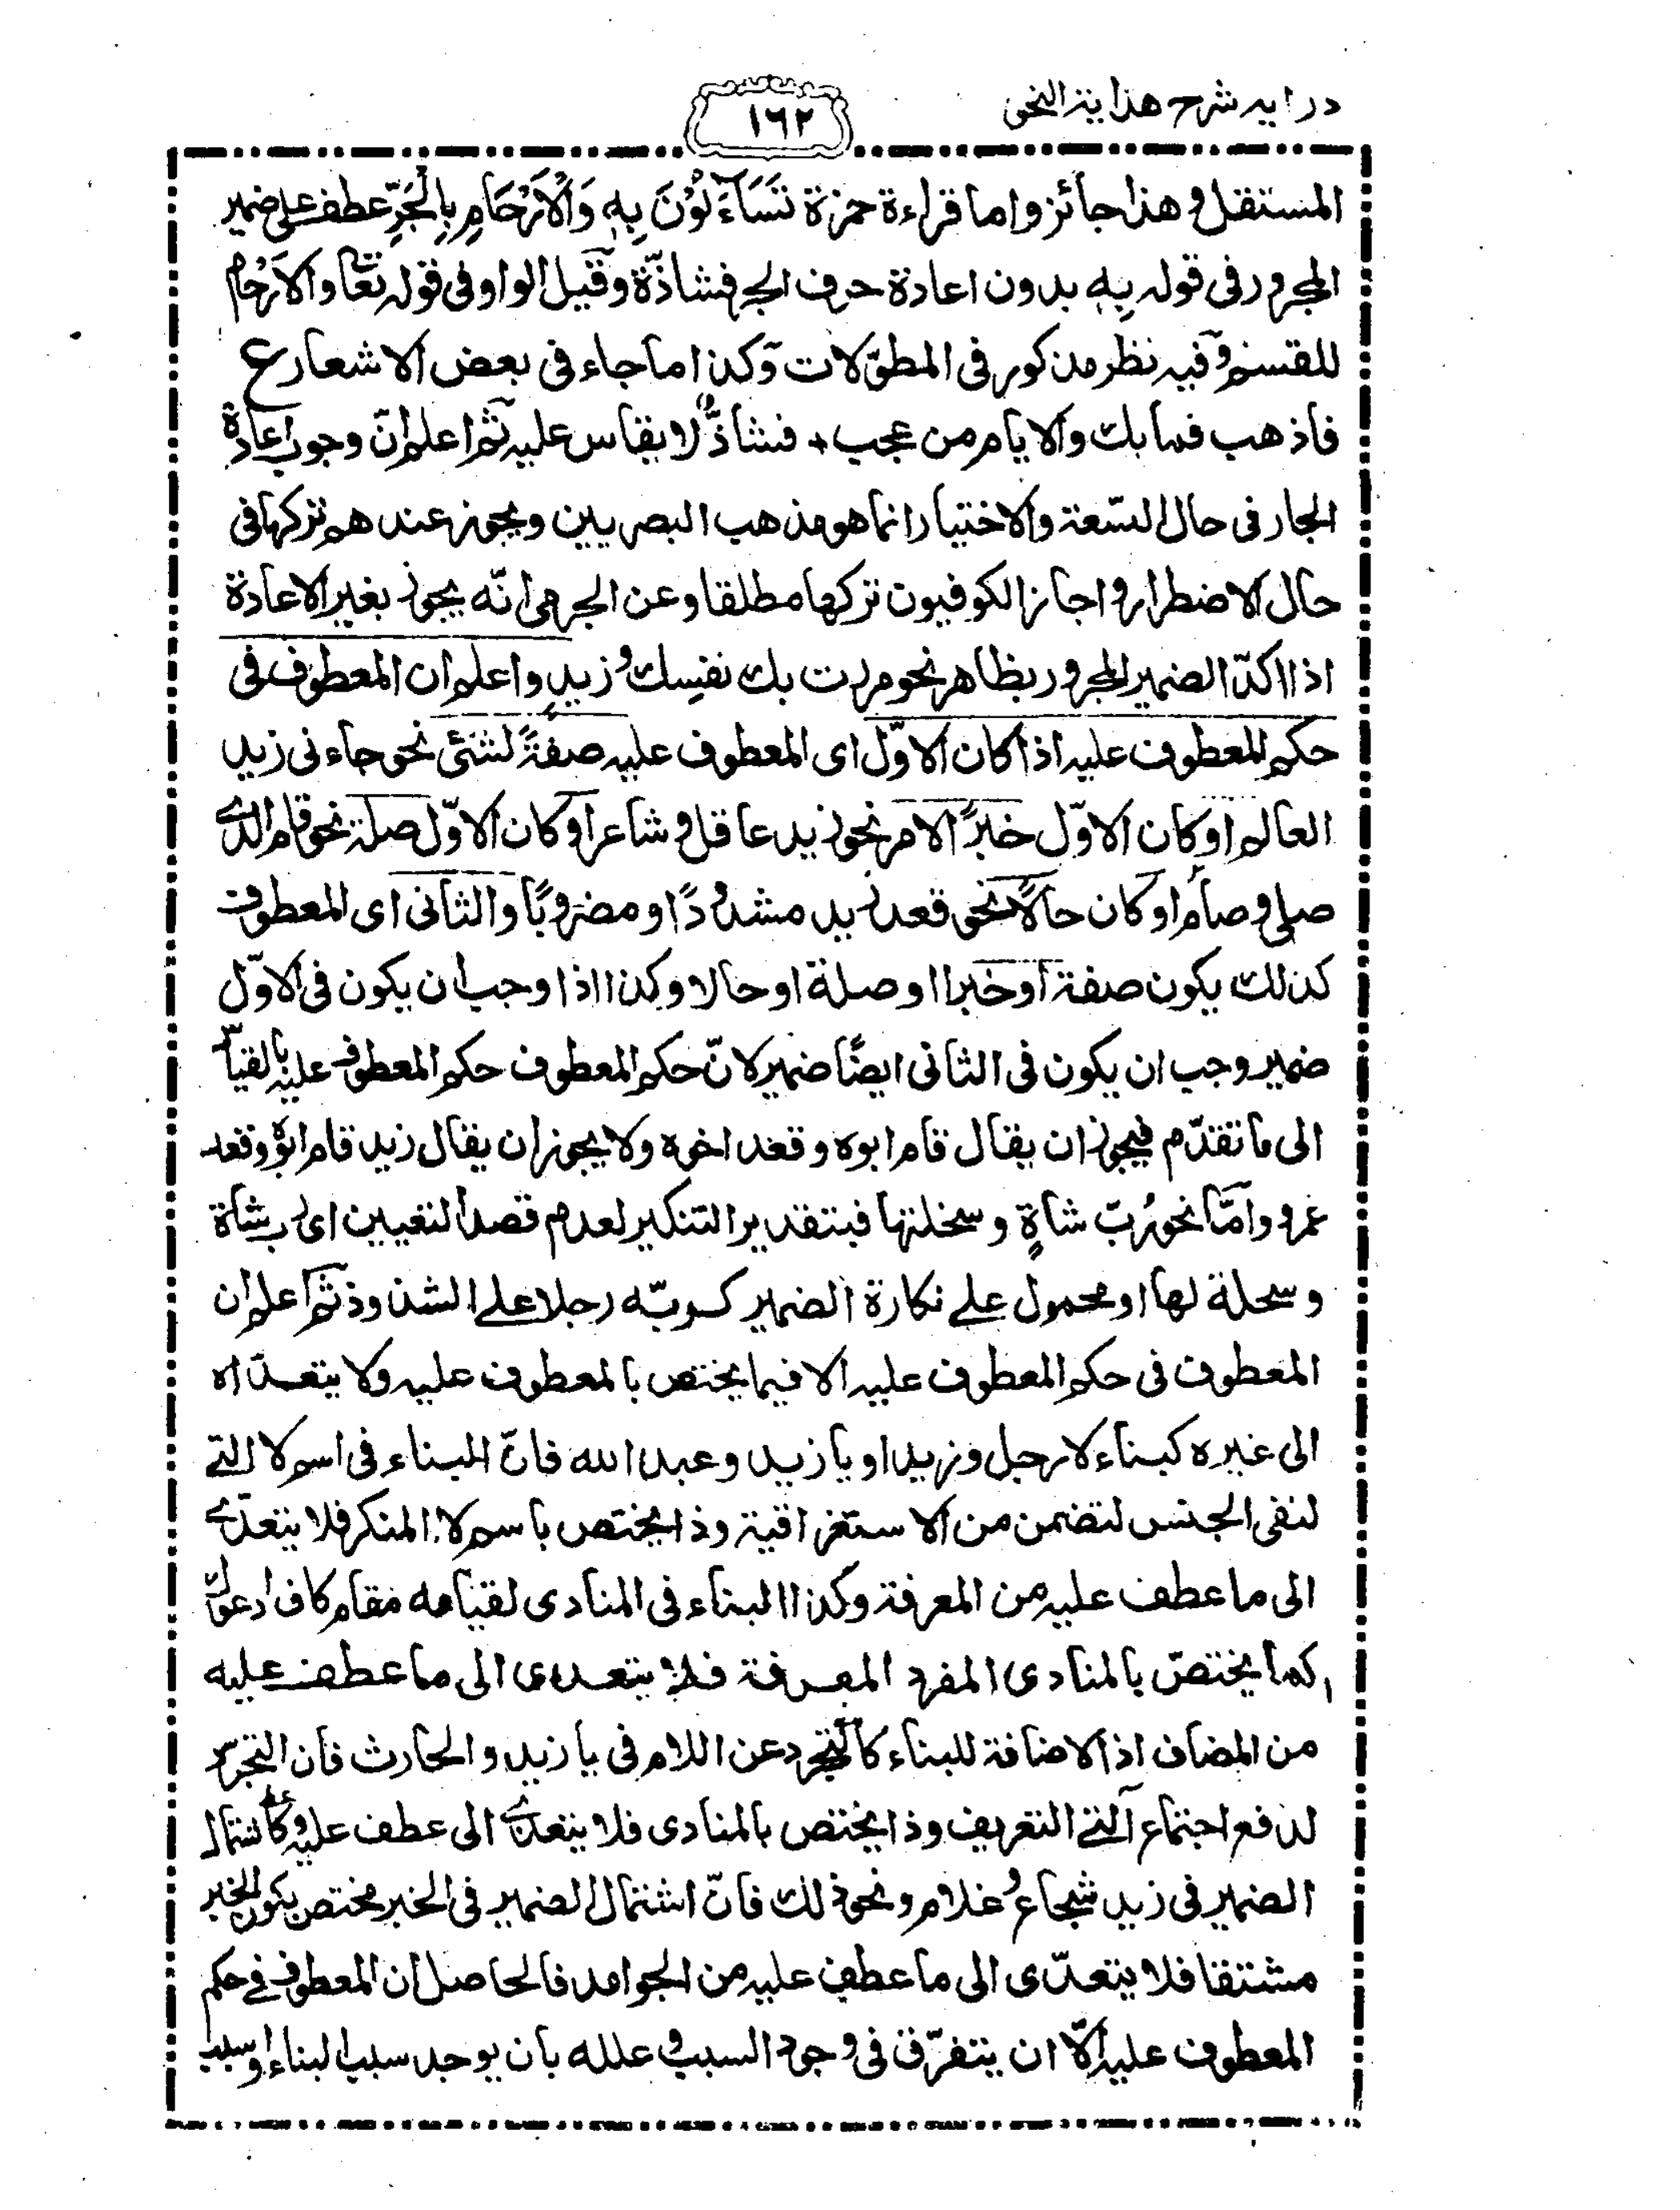 درايه شرح هداية النحو
١٦٢
المستقل وهذا جائز واما قراءة حمزة تَسَآءَلُوْنَ بِهٖ وَالْاَرْحَامِ بِالْجَرِّ عطف على ضمير
المجرور فى قوله بِهٖ بدون اعادة حرف الجر فشاذّة وقيل الواو فى قوله تعا والاَرْحام
للقسم وفيه نظر مذكور فى المطوّلات وكذا ما جاء فى بعض الاشعار ع
فاذهب فما بك والايام من عجب + فشاذٌّ لا يقاس عليه ثم اعلم انّ وجوب اعادة
الجار فى حال السّعة والاختيار انما هو مذهب البصريين ويجوز عندهم تركها فى
حال الاضطرار واجاز الكوفيون تركها مطلقا وعن الجرمى انّه يجوز بغير الاعادة
اذا اكدّ الضمير المجرور بظاهر نحو مررت بك نفسِك وزيدٍ واعلم ان المعطوف فى
حكم المعطوف عليه اذا كان الاوّل اى المعطوف عليه صفةً لشئ نحو جاءنى زيد
العالم او كان الاوّل خبرًا لامر نحو زيد عاقل وشاعر او كان الاوّل صلة نحو قام الذے
صلى وصام او كان حالًا نحو قعد زيد مشدودًا ومضروبًا والثانى اى المعطوف
كذلك يكون صفة او خبرا او صلة او حالا وكذا اذا وجب ان يكون فى الاوّل
ضمير وجب ان يكون فى الثانى ايضًا ضمير لانّ حكم المعطوف حكم المعطوف عليه بالقياس
الى ما تقدّم فيجوز ان يقال قام ابوه وقعد اخوه ولا يجوز ان يقال زيد قام ابوه وقعد
عمرو وامّا نحو رُبّ شاةٍ وسخلتها فبتقدير التنكير لعدم قصد التعيين اى رب شاة
وسخلة لها او محمول على نكارة الضمير كربّه رجلا على الشذوذ ثم اعلم ان
المعطوف فى حكم المعطوف عليه الا فيما يختص بالمعطوف عليه ولا يتعدّاه
الى غيره كبناء لا رجل وزيد او يا زيد وعبد الله فانّ البناء فى اسم لا التے
لنفى الجنس لتضمن من الاستغراقية وذا يختص باسم لا المنكر فلا يتعدّے
الى ما عطف عليه من المعرفة وكذا البناء فى المنادى لقيامه مقام كاف ادعوك
كما يختصّ بالمنادى المفرد المعرفة فلا يتعدى الى ما عطف عليه
من المضاف اذ الاضافة للبناء كالتجرد عن اللام فى يا زيد والحارث فان التجرّد
لدفع اجتماع آلتے التعريف وذا يختص بالمنادى فلا يتعدے الى عطف عليه وكاشتمال
الضمير فى زيد شجاع وغلام ونحو ذلك فانّ اشتمال الضمير فى الخبر مختص بكون الخبر
مشتقا فلا يتعدّى الى ما عطف عليه من الجوامد فالحاصل ان المعطوف فے حكم
المعطوف عليه الّا ان يتفرّق فى وجود السبب وعلله بان يوجد سبب البناء او سبب